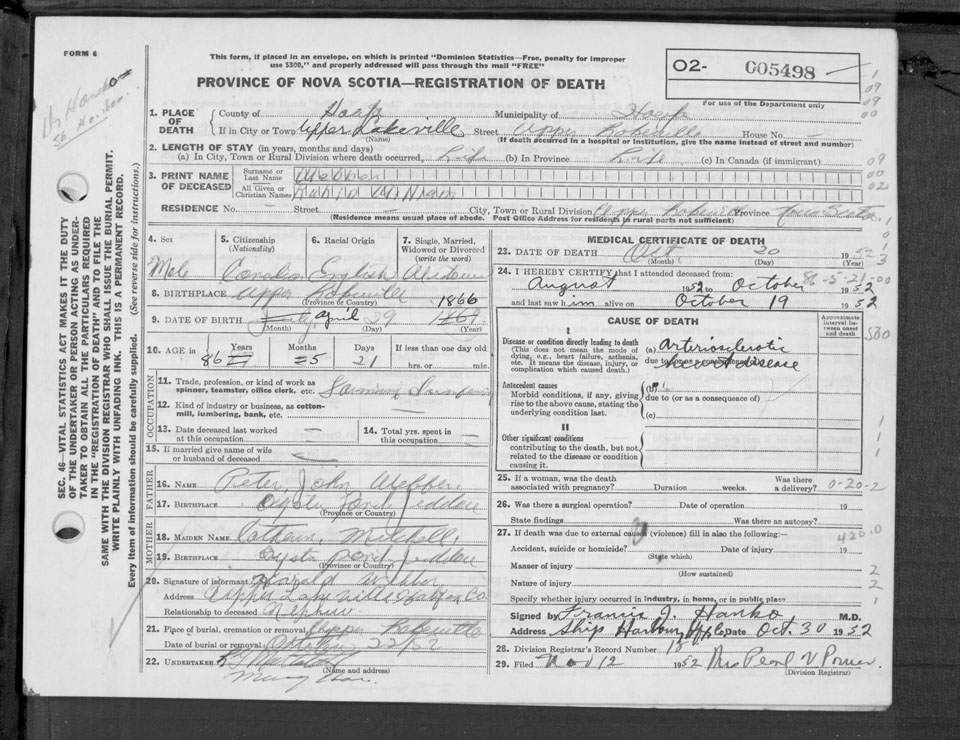 FORM 6
This form, if placed in an envelope, on which is printed "Dominion Statistics—Free, penalty for improper
use $300," and properly addressed will pass through the mail "FREE"
PROVINCE OF NOVA SCOTIA—REGISTRATION OF DEATH
O2- 005498
For use of the Department only
1. PLACE OF DEATH
County of Hfax Municipality of
If in City or Town Upper Lakeville Street Upper Lakeville House No. —
(Name) (If death occurred in a hospital or institution, give the name instead of street and number)
2. LENGTH OF STAY (in years, months and days)
(a) In City, Town or Rural Division where death occurred, Life (b) In Province Life (c) In Canada (if immigrant)
3. PRINT NAME OF DECEASED
Surname or Last Name Webber
All Given or Christian Names
RESIDENCE No. — Street — City, Town or Rural Division Upper Lakeville Province Nova Scotia
(Residence means usual place of abode. Post Office Address for residents in rural parts not sufficient)
4. Sex 5. Citizenship (Nationality) 6. Racial Origin 7. Single, Married, Widowed or Divorced (write the word)
Male Canadian English
8. BIRTHPLACE Upper Lakeville
(Province or Country)
1866
9. DATE OF BIRTH April 29
(Month) (Day) (Year)
10. AGE in Years Months Days If less than one day old
86 5 21 hrs. or min.
OCCUPATION
11. Trade, profession, or kind of work as spinner, teamster, office clerk, etc.
12. Kind of industry or business, as cotton-mill, lumbering, bank, etc. —
13. Date deceased last worked at this occupation — 14. Total yrs. spent in this occupation —
15. If married give name of wife or husband of deceased —
FATHER
16. NAME Peter John Webber
17. BIRTHPLACE Oyster Pond Jeddore
(Province or Country)
MOTHER
18. MAIDEN NAME Mitchell
19. BIRTHPLACE Oyster Pond Jeddore
(Province or Country)
20. Signature of informant Harold Webber
Address Upper Lakeville Halifax Co
Relationship to deceased Nephew
21. Place of burial, cremation or removal Upper Lakeville
Date of burial or removal October 22/52
22. UNDERTAKER
(Name and address)
MEDICAL CERTIFICATE OF DEATH
23. DATE OF DEATH Oct 20 1952
(Month) (Day) (Year)
24. I HEREBY CERTIFY that I attended deceased from:
August 1952 to October
86-5-21-00
and last saw him alive on October 19 1952
CAUSE OF DEATH
Approximate interval between onset and death
I
Disease or condition directly leading to death
(This does not mean the mode of dying, e.g., heart failure, asthenia, etc. It means the disease, injury, or complication which caused death.)
(a) Arteriosclerotic
due to (or as a consequence of)
Heart disease
Antecedent causes
Morbid conditions, if any, giving rise to the above cause, stating the underlying condition last.
(b)
due to (or as a consequence of)
(c)
II
Other significant conditions
contributing to the death, but not related to the disease or condition causing it.
25. If a woman, was the death associated with pregnancy? Duration weeks. Was there a delivery?
0-20-2
26. Was there a surgical operation? Date of operation 19
State findings Was there an autopsy?
27. If death was due to external causes (violence) fill in also the following:—
Accident, suicide or homicide? Date of injury 19
(State which)
420.0
Manner of injury
(How sustained)
Nature of injury
Specify whether injury occurred in industry, in home, or in public place
Signed by Francis J. Hanko M.D.
Address Ship Harbour Hfx Co Date Oct. 30 1952
28. Division Registrar's Record Number 13
29. Filed Nov 12 1952 Mrs Pearl V Power
(Division Registrar)
SEC. 46—VITAL STATISTICS ACT MAKES IT THE DUTY
OF THE UNDERTAKER OR PERSON ACTING AS UNDER-
TAKER TO OBTAIN ALL THE PARTICULARS REQUIRED
IN THE "REGISTRATION OF DEATH" AND TO FILE THE
SAME WITH THE DIVISION REGISTRAR WHO SHALL ISSUE THE BURIAL PERMIT.
WRITE PLAINLY WITH UNFADING INK. THIS IS A PERMANENT RECORD.
Every item of information should be carefully supplied. (See reverse side for instructions.)
Dr Hanko
Sh Harbor